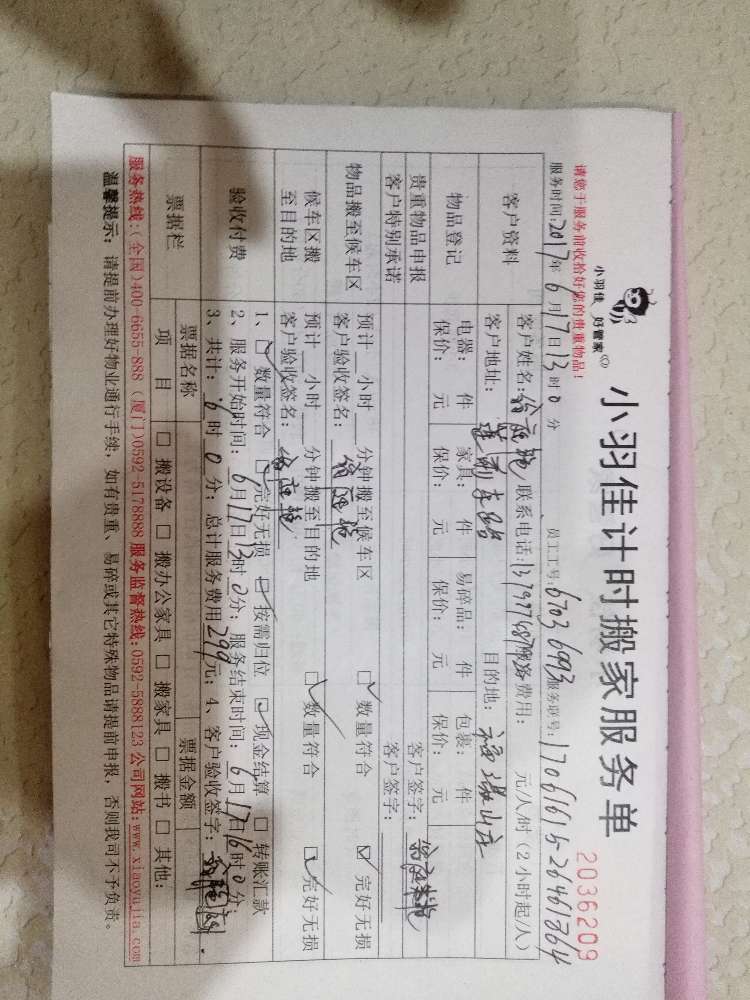 小羽佳计时搬家服务单
小羽佳 好管家
2036209
请您于服务前收拾好您的贵重物品!
服务时间:2017年6月17日13时0分 员工工号:6703 6993 服务联号:
客户资料
客户姓名: 联系电话: 服务费用: 元/人/时(2小时起/人)
客户地址: 目的地:
物品登记
电器: 件 家具: 件 易碎品: 件 包裹: 件
保价: 元 保价: 元 保价: 元 保价: 元
贵重物品申报
客户特别承诺
客户签字:
客户签字:
物品搬至候车区
预计__小时__分钟搬至候车区 ☑数量符合 ☑完好无损
客户验收签名:
候车区搬
至目的地
预计__小时__分钟搬至目的地 ☑数量符合 ☑完好无损
客户验收签名:
验收付费
1、☑数量符合 ☑完好无损 ☑按需归位 ☑现金结算 □转账汇款
2、服务开始时间:6月17日13时0分;服务结束时间:6月17日16时0分
3、共计:6时0分;总计服务费用299元;4、客户验收签字:
票据栏
票据名称 票据金额
项 目 □搬设备 □搬办公家具 □搬家具 □搬书 □其他:
服务热线:(全国)400-6655-888 (厦门)0592-5178888 服务监督热线:0592-5888123 公司网站:www.xiaoyujia.com
温馨提示:请提前办理好物业通行手续,如有贵重、易碎或其它特殊物品请提前申报,否则我司不予负责。